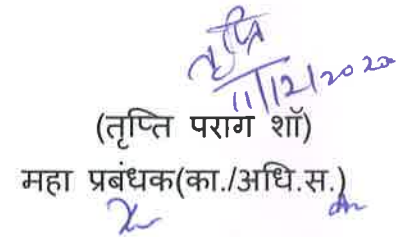 तृप्ति
11/12/2020
(तृप्ति पराग शॉ)
महा प्रबंधक(का./अधि.स.)